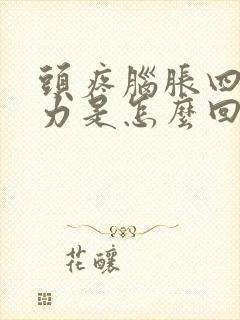 頭疼腦脹四
力是怎麼回
花釀